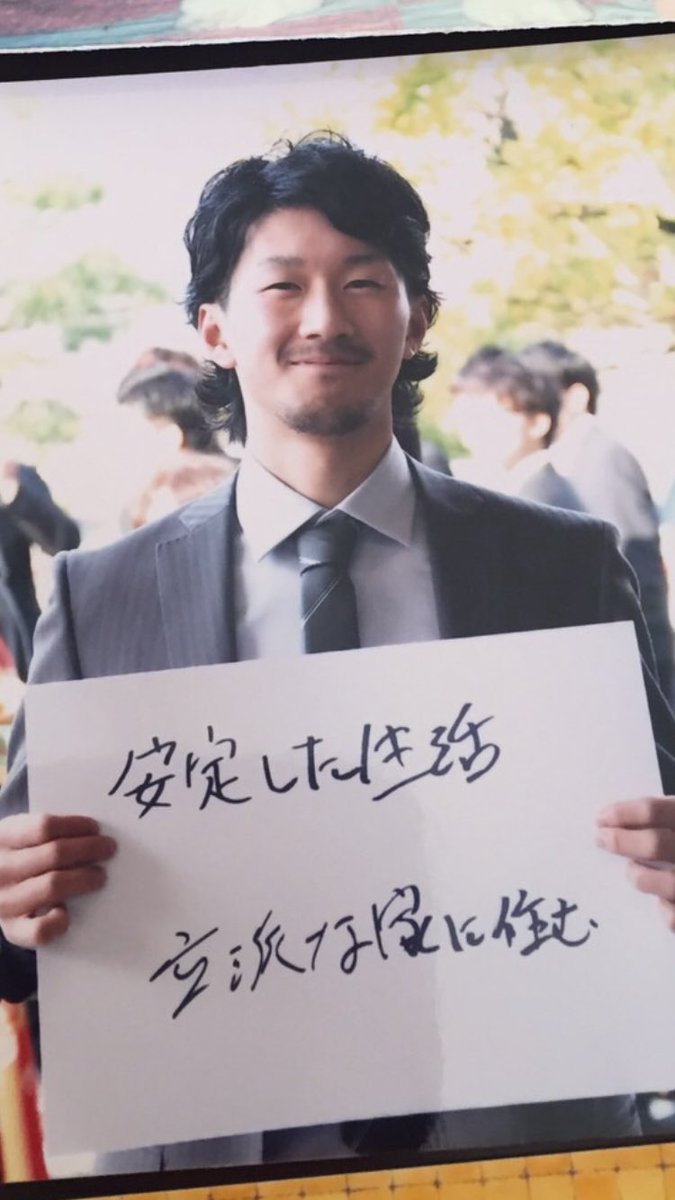 安定した生活
立派な家に住む